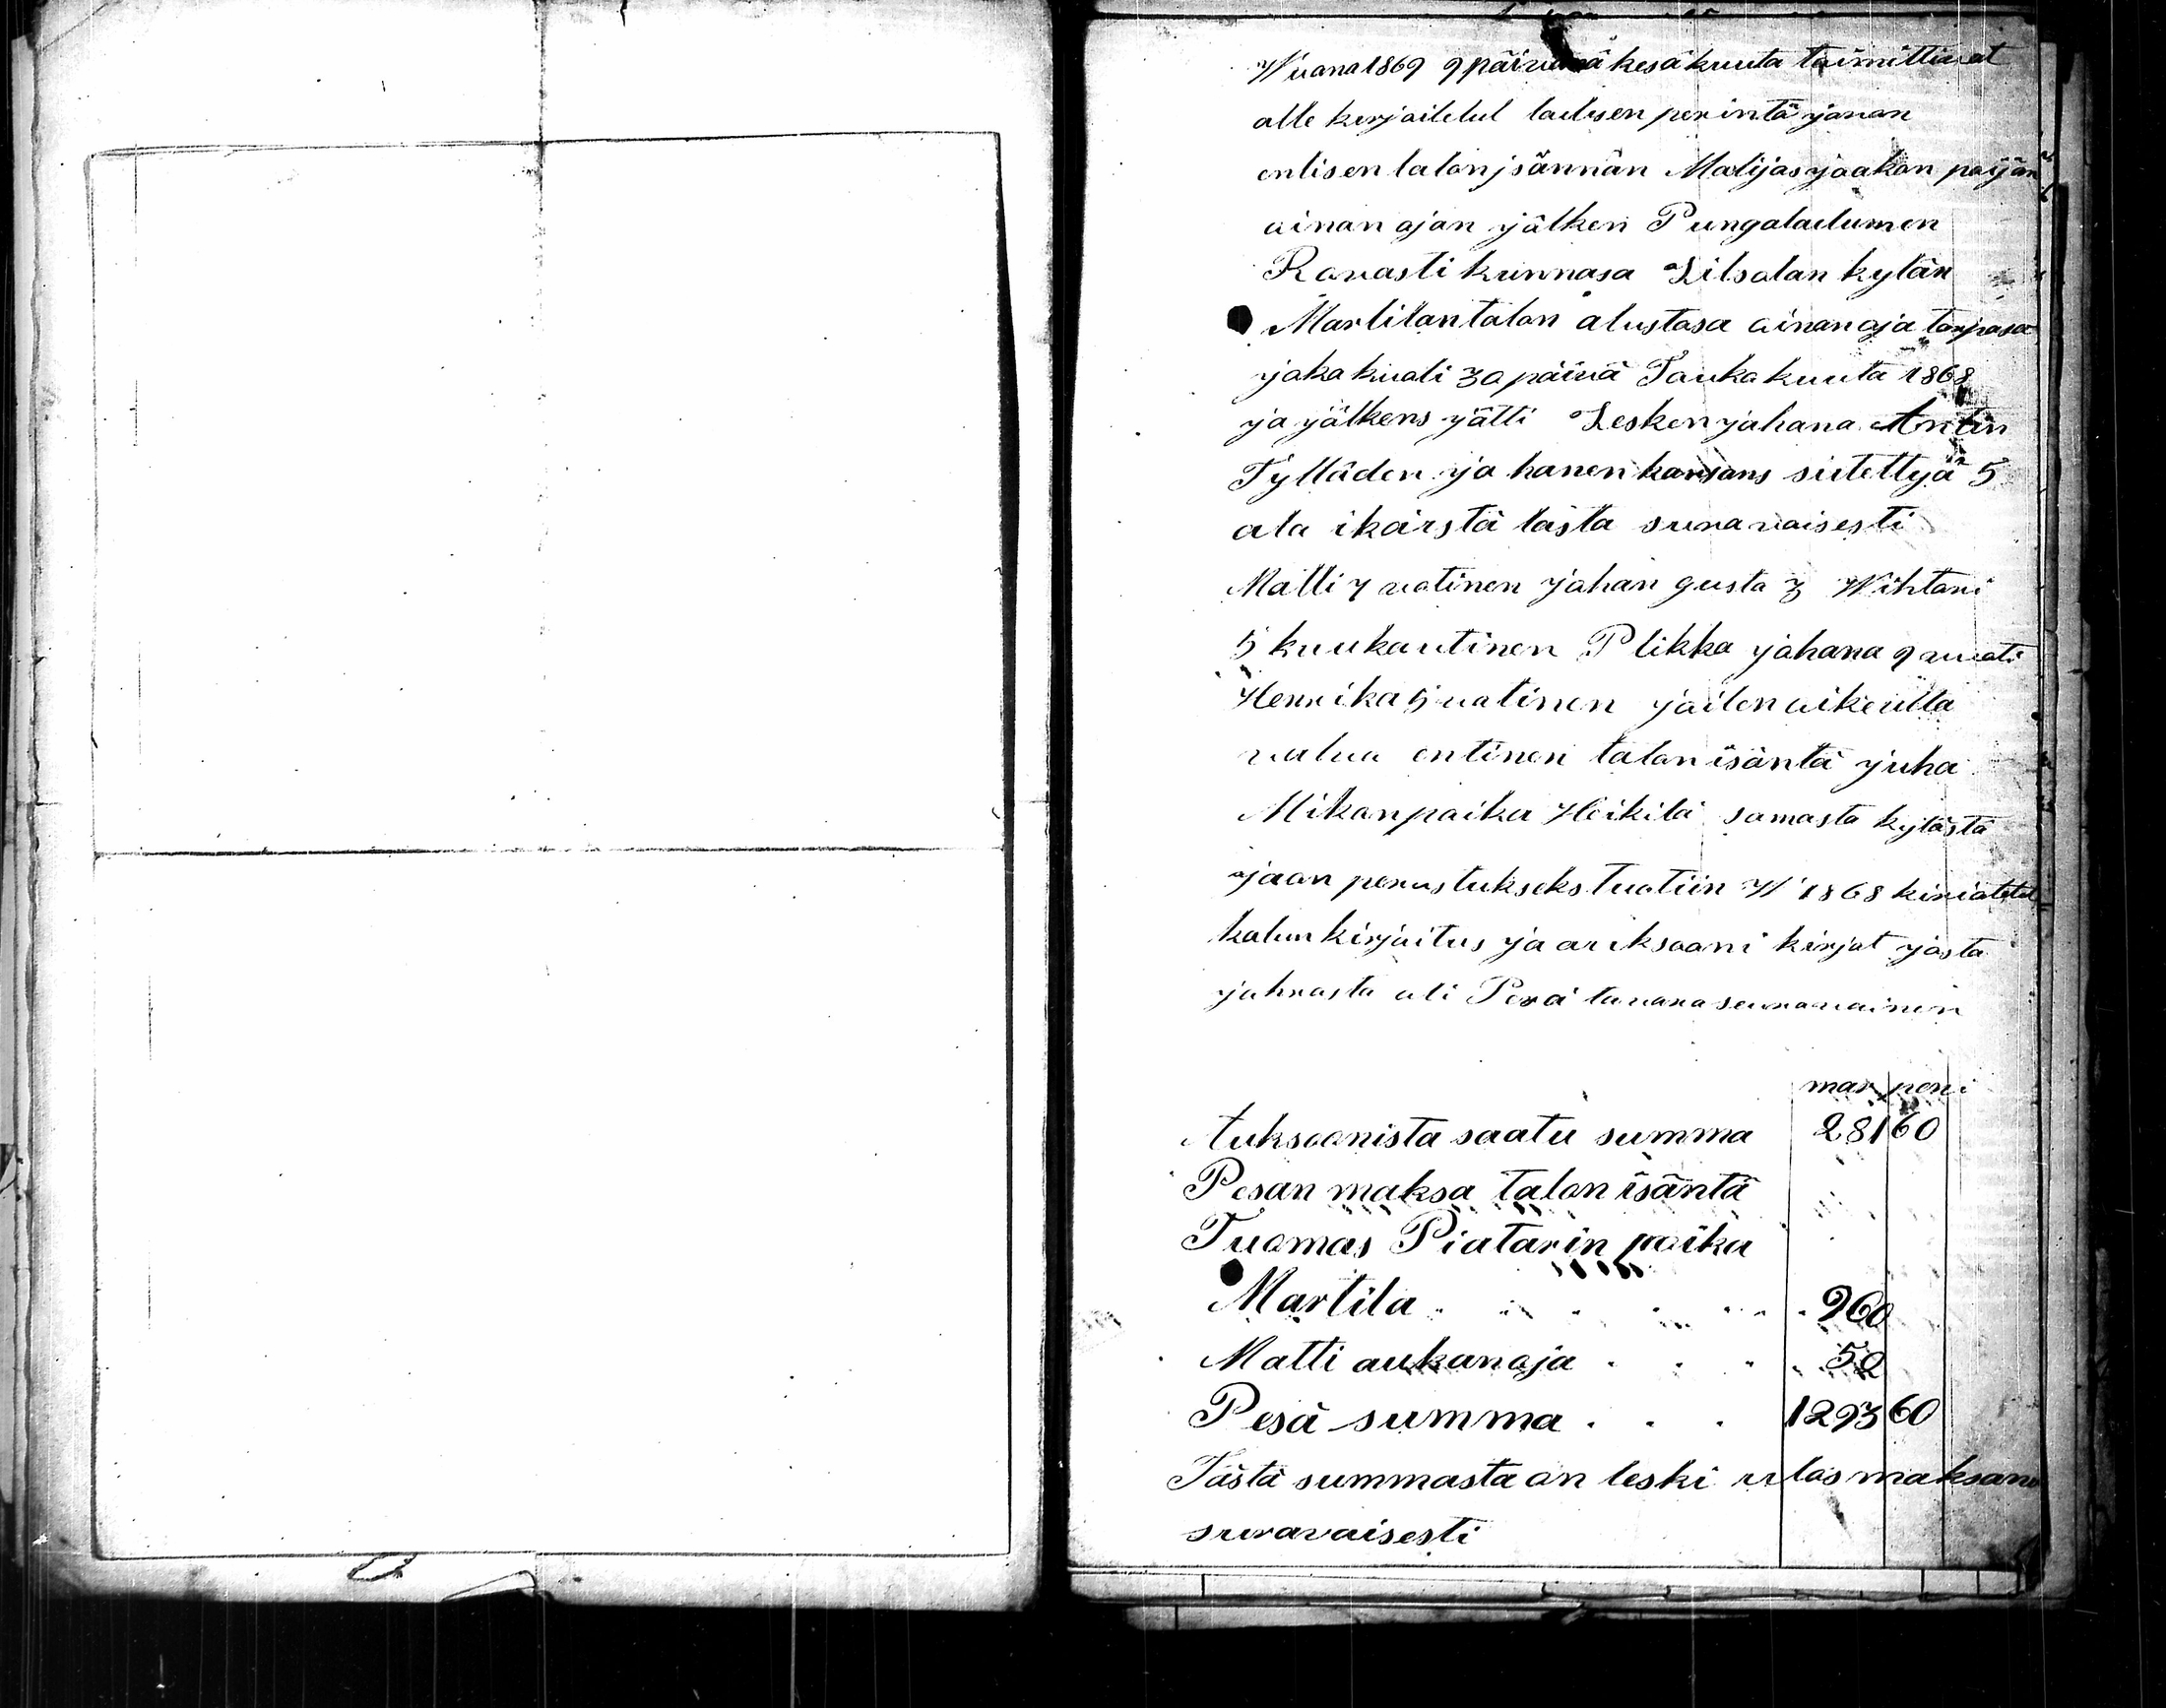 Wuana 1869 9 päivänä kesäkuuta toimittiwat
alle kirjoitetut laelisen perintäjaon
entisen talonjsännän Matijas jaakon pojan
ainanajan jälken Pungalaitumen
Rovastikunnasa Liitsolan kylän
Marttilan talon alustasa ainanoja torpasa
joka kuali 30 päivä Toukokuuta 1868
ja jälkens jätti Lesken johana Antin
Tyttäden ja hanen kansans siitettyä 5
ala ikäistä lasta suravaisesti
Matti 7 uotinen johan gusta 3 Wihtari
5 kuukautinen Plikka johana 9 vuoti
Henrika 5 uotinen joiten oikeutta
valvo entinen talon isäntä juha
Mikon poika Heikilä samasta kylästä
jaon perustukseks tuotiin W 1868 kirioitetut
kalun kirjoitus ja auksooni kirjat josta
johnasta oli Pesä tavara seuravainen
mar peni
Auksoonista saatu summa 281 60
Pesan maksa talon isäntä
Tuomas Piatarin poika
Martila 960
Matti aukanoja 52
Pesä summa 1293 60
Tästä summasta on leski ulos maksanu
suravaisesti